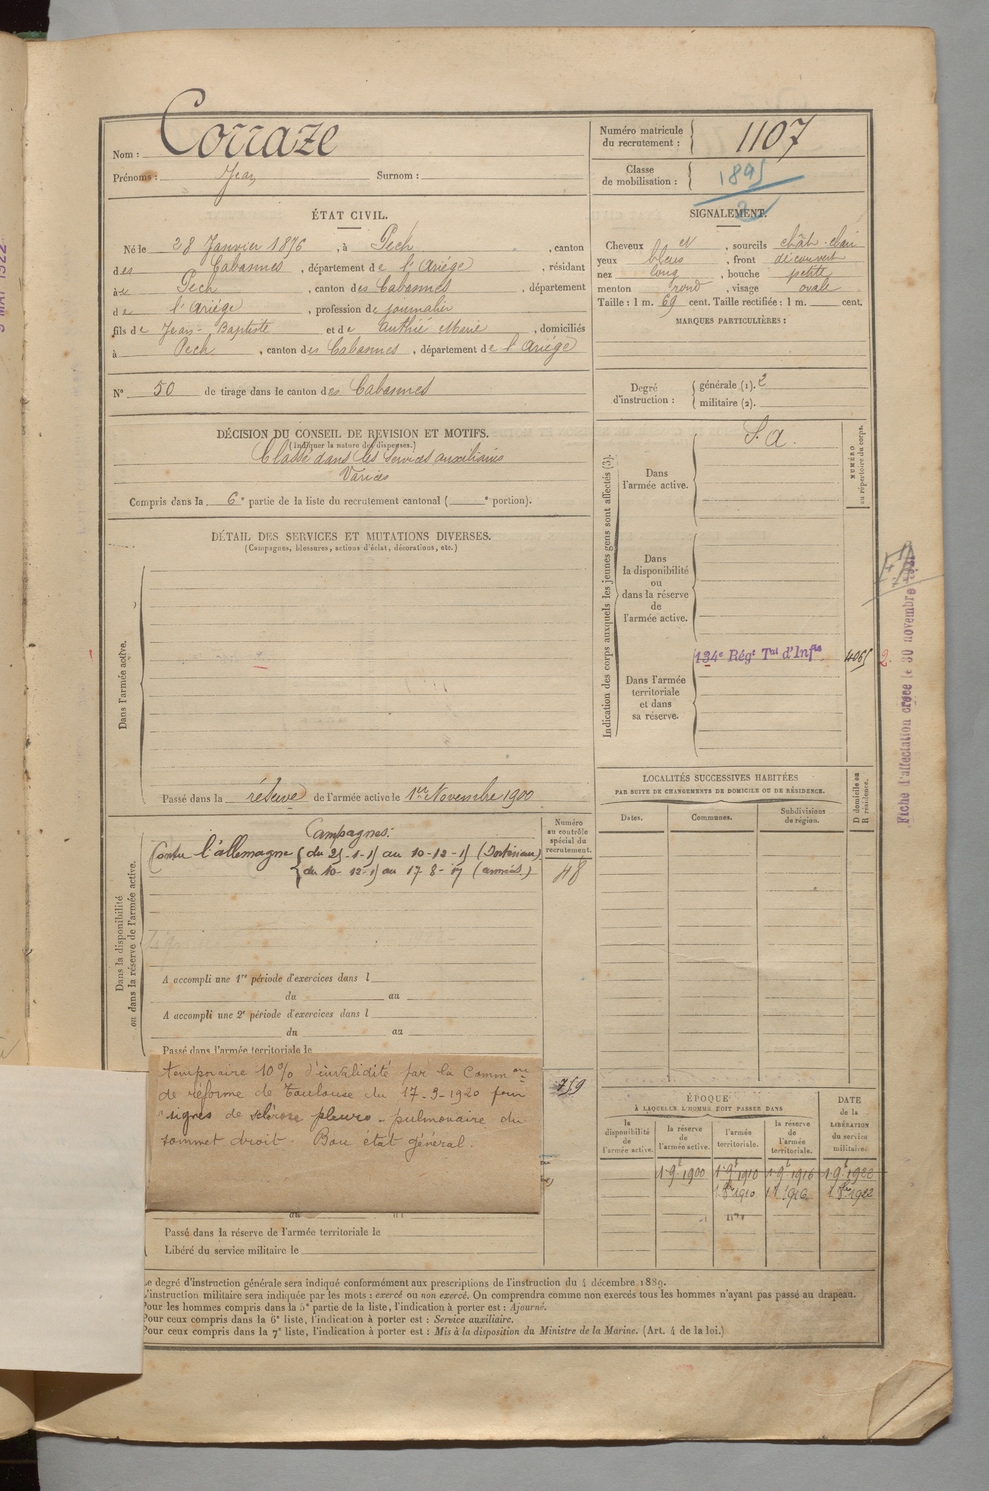 Nom : Corraze
Prénoms : Jean Surnom :
Numéro matricule du recrutement : 1107
Classe de mobilisation : 1895
2
ÉTAT CIVIL.
Né le 28 Janvier 1876, à Pech, canton
des Cabannes, département de l'Ariège, résidant
à Pech, canton des Cabannes, département
de l'Ariège, profession de journalier
fils de Jean-Baptiste et de Authié Marie, domiciliés
à Pech, canton des Cabannes, département de l'Ariège
N° 50 de tirage dans le canton des Cabannes
SIGNALEMENT.
Cheveux et, sourcils chât. clair
yeux bleus, front découvert
nez long, bouche petite
menton rond, visage ovale
Taille : 1 m. 69 cent. Taille rectifiée : 1 m. cent.
MARQUES PARTICULIÈRES :
Degré d'instruction : générale (1). 2
militaire (2).
DÉCISION DU CONSEIL DE REVISION ET MOTIFS.
(Indiquer la nature des dispenses.)
Classé dans les services auxiliaires
Varices
Compris dans la 6e partie de la liste du recrutement cantonal ( e portion).
DÉTAIL DES SERVICES ET MUTATIONS DIVERSES.
(Campagnes, blessures, actions d'éclat, décorations, etc.)
Dans l'armée active.
Passé dans la réserve de l'armée active le 1er Novembre 1900
Indication des corps auxquels les jeunes gens sont affectés (3).
NUMÉRO au répertoire du corps.
Dans l'armée active.
S. A.
Dans la disponibilité ou dans la réserve de l'armée active.
Dans l'armée territoriale et dans sa réserve.
134e Régt Tial d'Infie
4065
2.
Fiche d'affectation créée le 30 novembre
Dans la disponibilité ou dans la réserve de l'armée active.
Campagnes :
Contre l'allemagne du 25-1-15 au 10-12-15 (Intérieur)
du 10-12-15 au 17-8-17 (armées)
Numéro au contrôle spécial du recrutement.
48
A accompli une 1re période d'exercices dans l
du au
A accompli une 2e période d'exercices dans l
du au
Passé dans l'armée territoriale le
temporaire 10% d'invalidité par la Common
de réforme de Toulouse du 17-9-1920 pour
signes de sclérose pleuro-pulmonaire du
sommet droit. Bon état général.
759
Passé dans la réserve de l'armée territoriale le
Libéré du service militaire le
LOCALITÉS SUCCESSIVES HABITÉES
PAR SUITE DE CHANGEMENTS DE DOMICILE OU DE RÉSIDENCE.
D domicile ou R résidence.
Dates. Communes. Subdivisions de région.
ÉPOQUE
À LAQUELLE L'HOMME DOIT PASSER DANS
DATE de la LIBÉRATION du service militaire.
la disponibilité de l'armée active. la réserve de l'armée active. l'armée territoriale. la réserve de l'armée territoriale.
1.9bre 1900 1.9bre 1910 1.9bre 1916 1.9bre 1922
1.8bre 1910 1.8bre 1916 1.8bre 1922
Le degré d'instruction générale sera indiqué conformément aux prescriptions de l'instruction du 4 décembre 1889.
L'instruction militaire sera indiquée par les mots : exercé ou non exercé. On comprendra comme non exercés tous les hommes n'ayant pas passé au drapeau.
Pour les hommes compris dans la 5e partie de la liste, l'indication à porter est : Ajourné.
Pour ceux compris dans la 6e liste, l'indication à porter est : Service auxiliaire.
Pour ceux compris dans la 7e liste, l'indication à porter est : Mis à la disposition du Ministre de la Marine. (Art. 4 de la loi.)